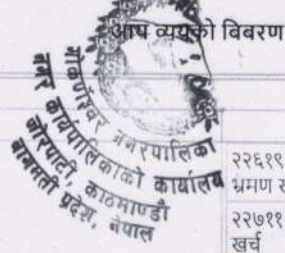 आय व्ययको विबरण
गोकर्णेश्वर नगरपालिका
नगर कार्यपालिकाको कार्यालय
जोरपाटी, काठमाण्डौ
बागमती प्रदेश, नेपाल
२२६१९
भ्रमण
२२७११
खर्च